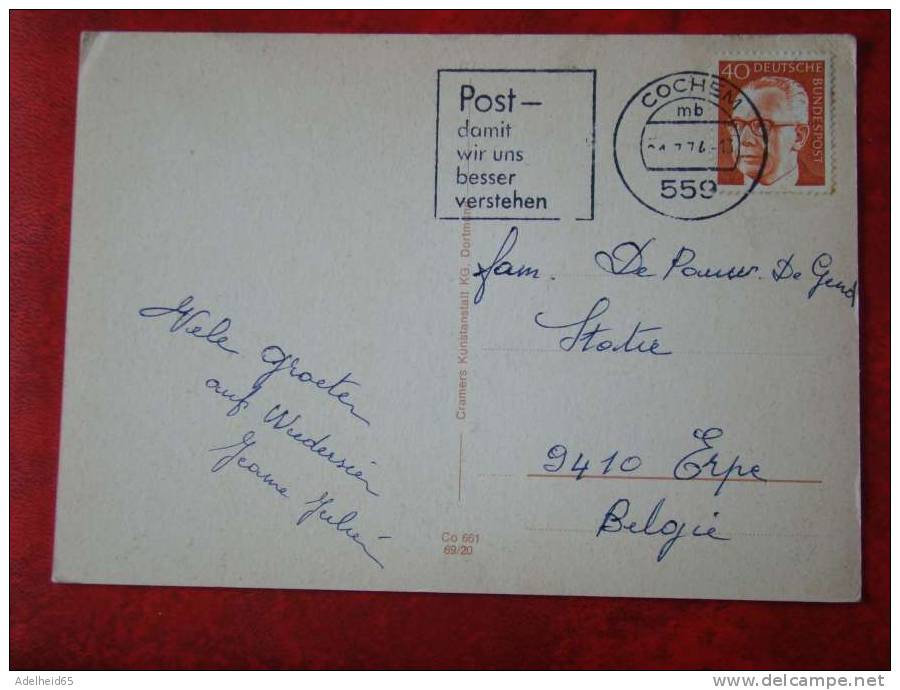 Post –
damit
wir uns
besser
verstehen
COCHEM
mb
559
40 DEUTSCHE
BUNDESPOST
Vele groeten
auf Wiedersien
Jeanne Julien
Cramers Kunstanstalt KG, Dortmund
Co 661
69/20
fam. De Pauw. De Gend
Statie
9410 Erpe
Belgie
Adelheid65
delcampe.net